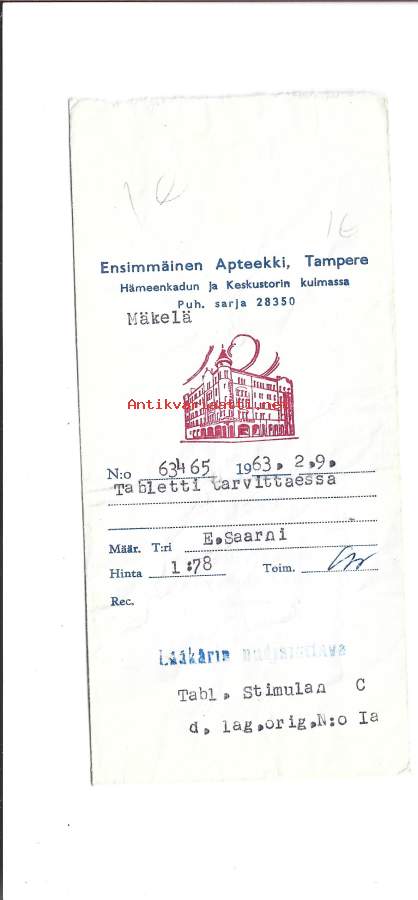 1€
1€
Ensimmäinen Apteekki, Tampere
Hämeenkadun ja Keskustorin kulmassa
Puh. sarja 28350
Mäkelä
Antikvariaatti.net
N:o 63465 1963. 2.9.
Tabletti tarvittaessa
Määr. T:ri E.Saarni
Hinta 1:78 Toim.
Rec.
Lääkärin uudistettava
Tabl. Stimulan C
d. lag.orig.N:o Ia